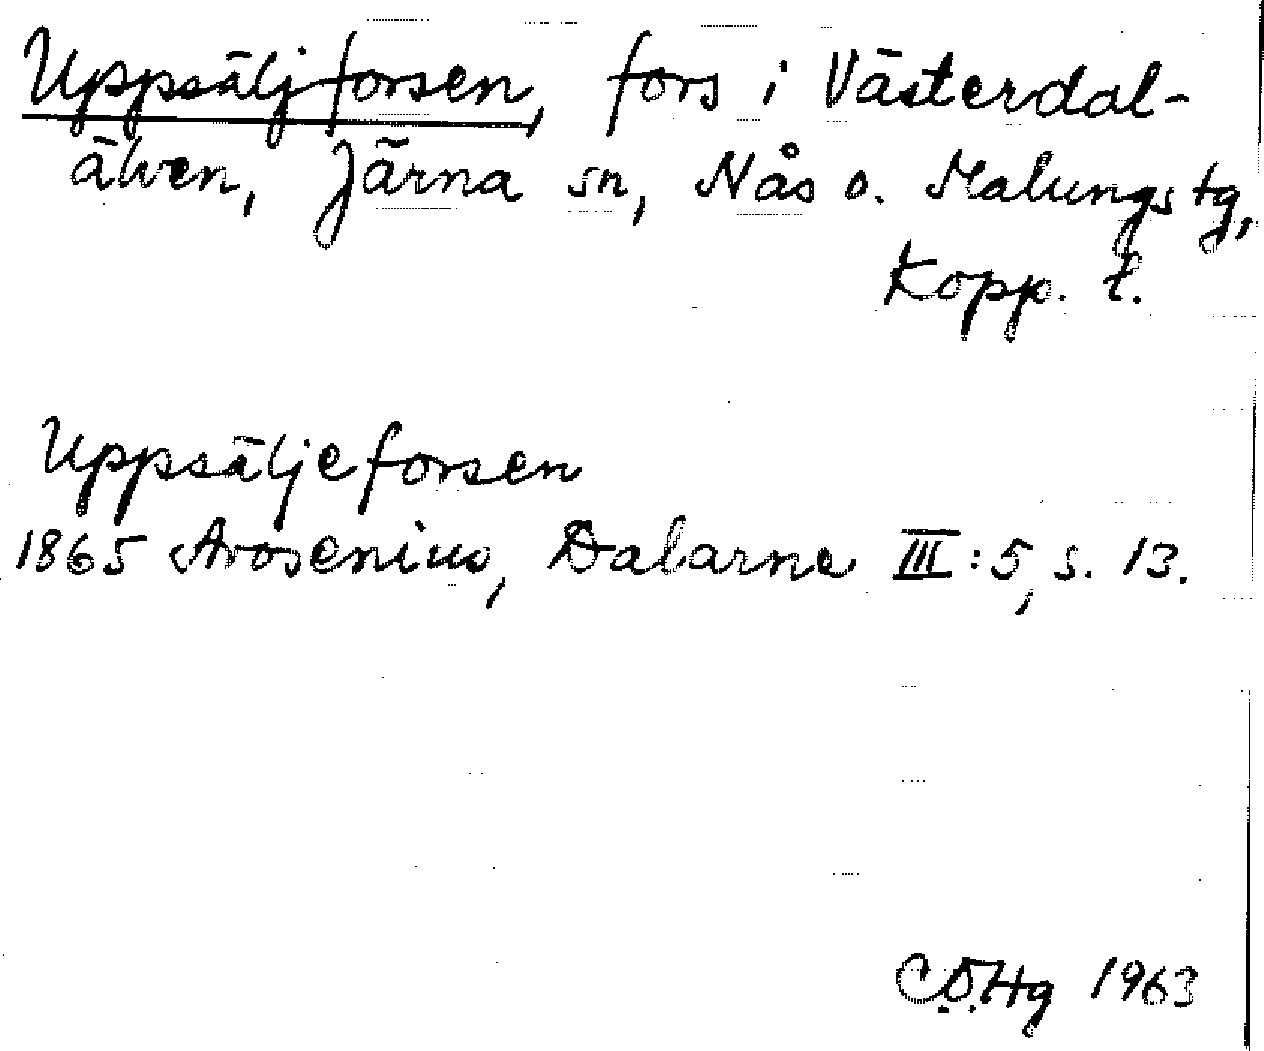 Uppsäljforsen, fors i Västerdal-
älven, Järna sn, Nås o. Malungs tg,
Kopp. l.
Uppsäljeforsen
1865 Arosenius, Dalarne III:5, s. 13.
C.Ö.Hg 1963